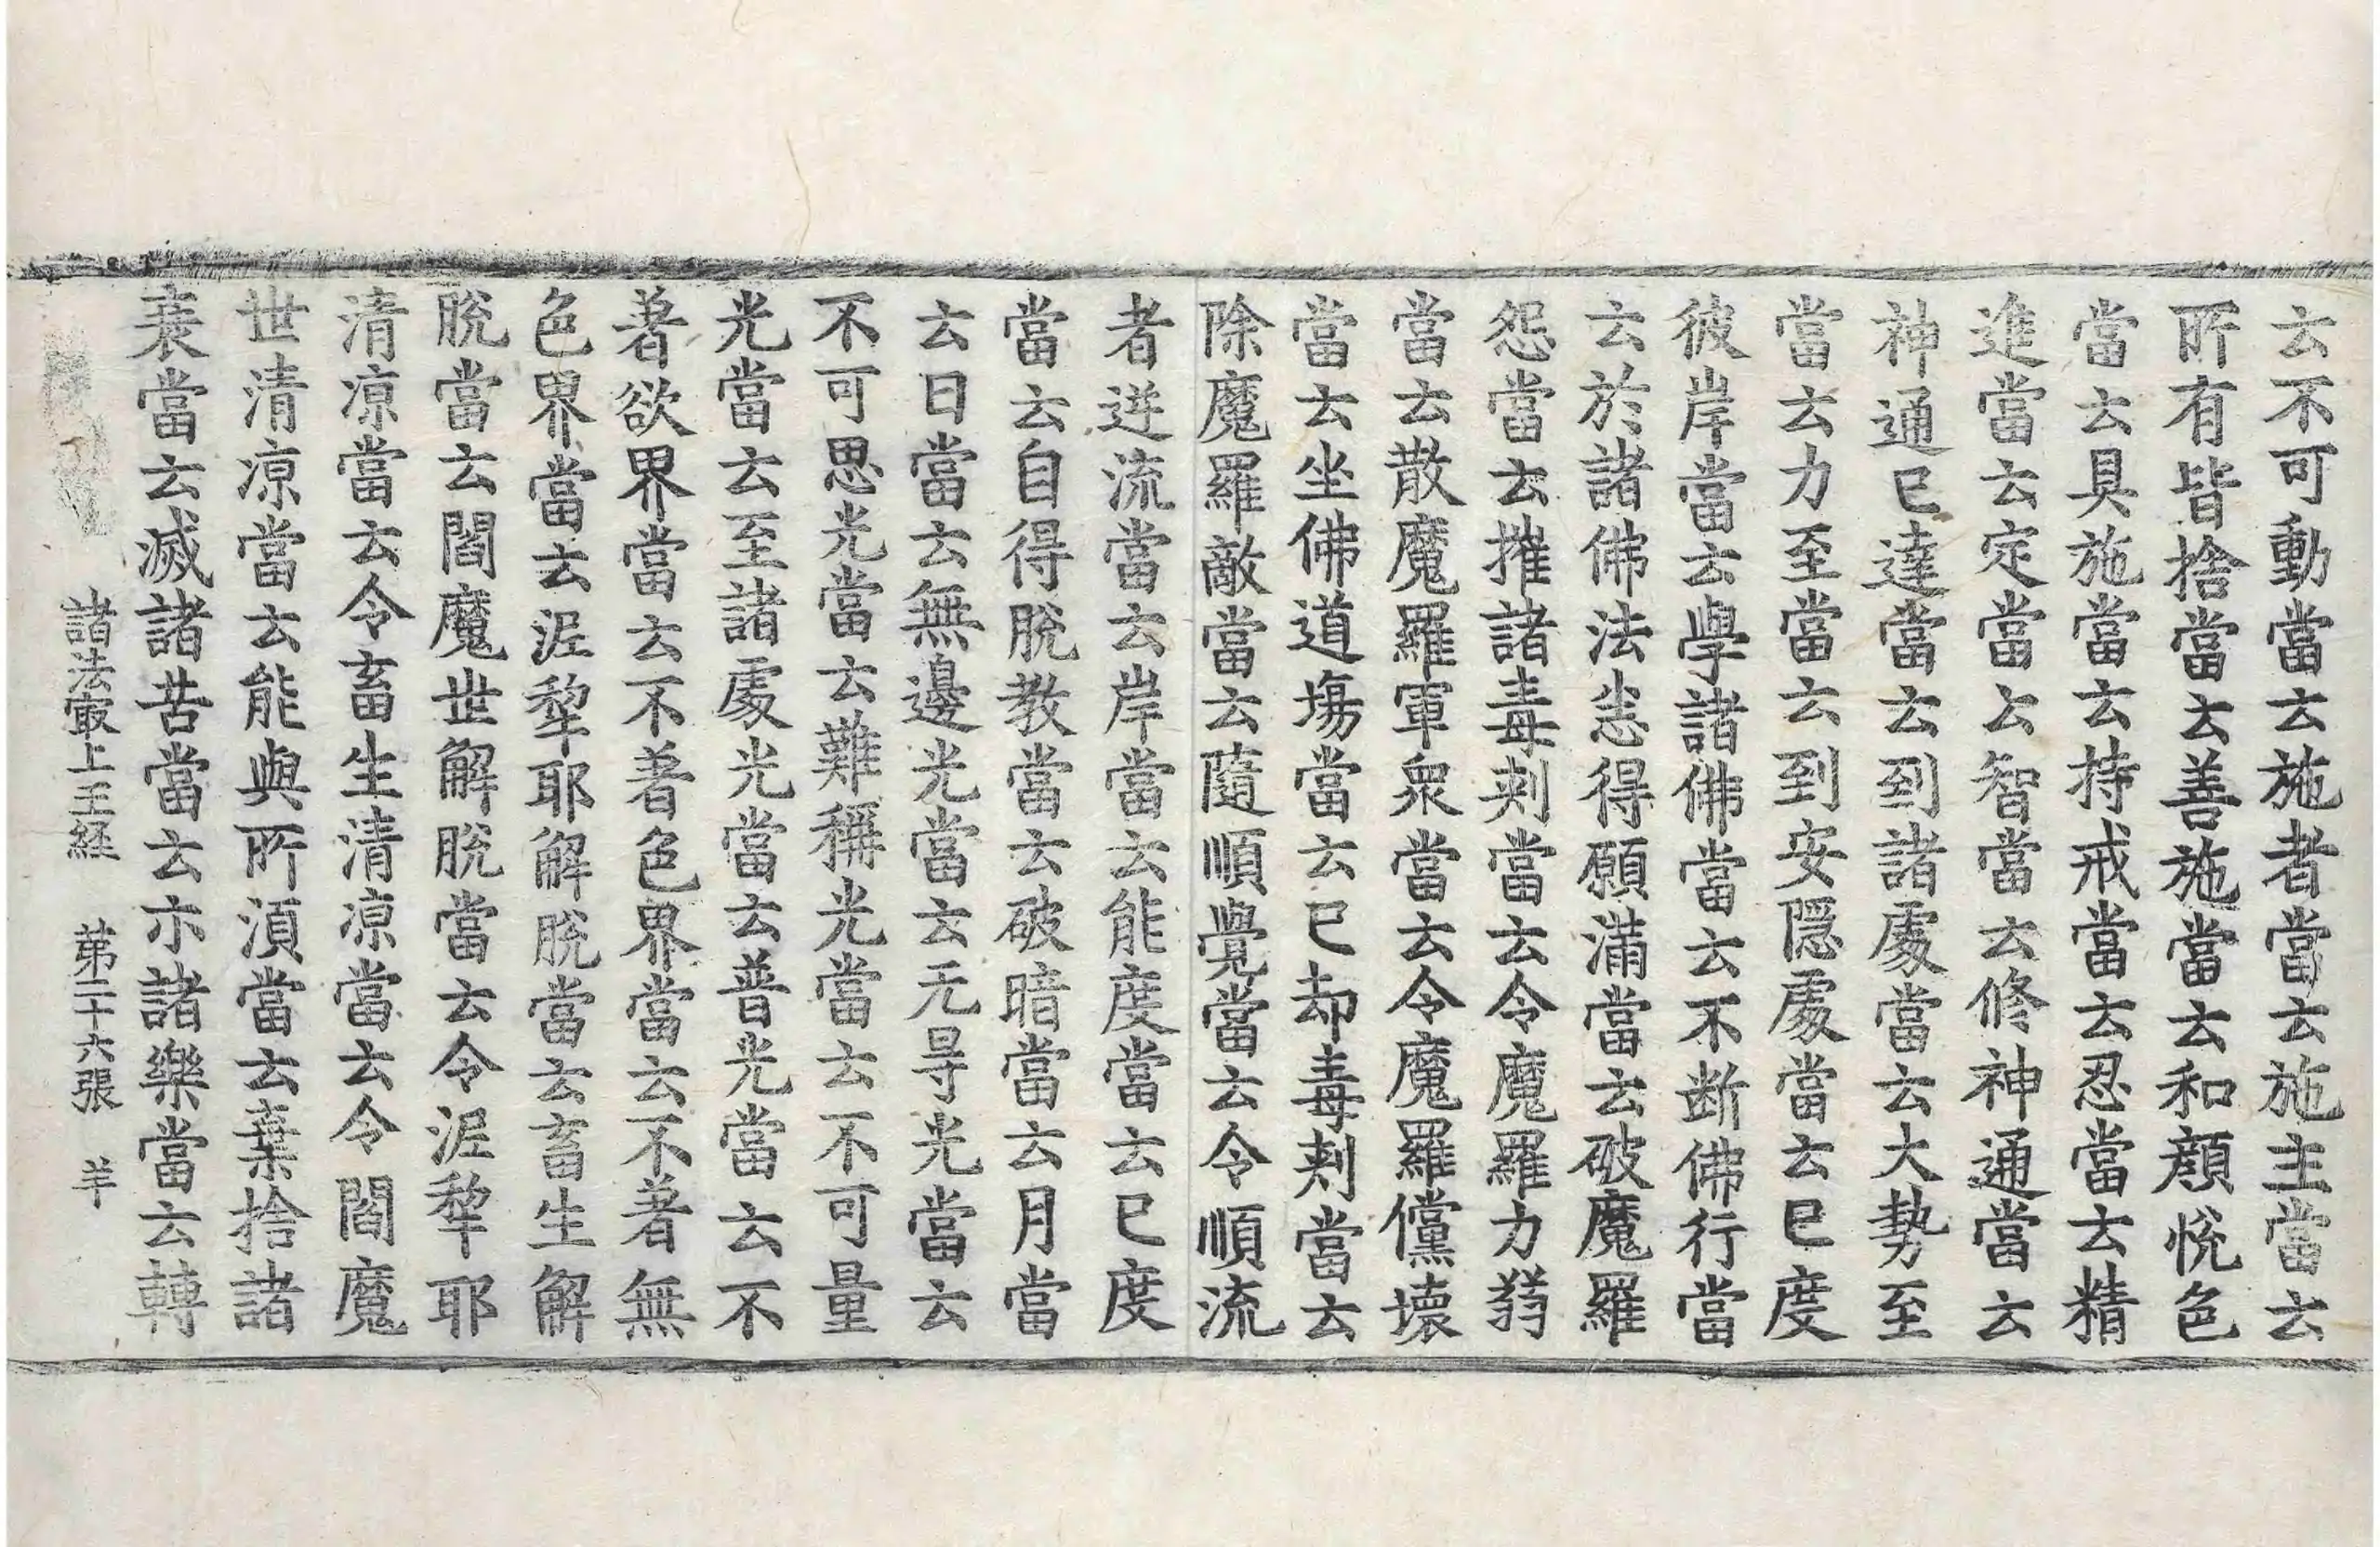 云不可動當云施者當云施主當云
所有皆捨當云善施當云和顔悅色
當云具施當云持戒當云忍當云精
進當云定當云智當云修神通當云
神通已達當云到諸處當云大勢至
當云力至當云到安隱處當云已度
彼岸當云學諸佛當云不断佛行當
云於諸佛法悉得願滿當云破魔羅
怨當云摧諸毒刺當云令魔羅力弱
當云散魔羅軍衆當云令魔羅儻壞
當云坐佛道場當云已却毒刺當云
除魔羅敵當云隨順覺當云令順流
者逆流當云岸當云能度當云已度
當云自得脫教當云破暗當云月當
云日當云無邊光當云无㝵光當云
不可思光當云難稱光當云不可量
光當云至諸處光當云普光當云不
著欲界當云不著色界當云不著無
色界當云泥犂耶解脫當云畜生解
脫當云閻魔世解脫當云令泥犂耶
清凉當云令畜生清凉當云令閻魔
世清凉當云能與所湏當云棄捨諸
衰當云滅諸苦當云示諸樂當云轉
諸法㝡上王経 苐二十六張 羊